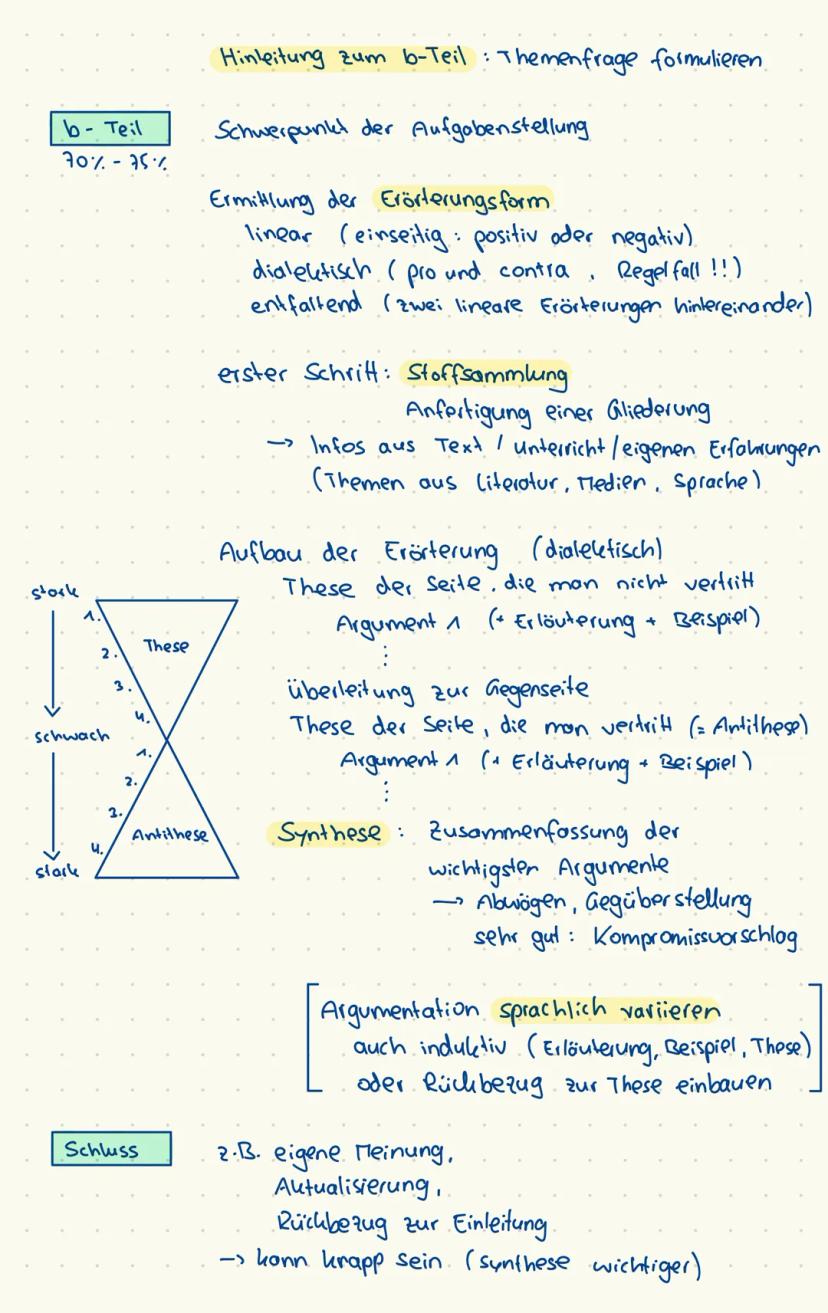 Hinleitung zum b-Teil : Themenfrage formulieren
b- Teil
70% - 75%
Schwerpunkt der Aufgabenstellung
Ermittlung der Erörterungsform
linear (einseitig : positiv oder negativ)
dialektisch ( pro und contra , Regelfall !!)
entfaltend (zwei lineare Erörterungen hintereinander)
erster Schritt: Stoffsammlung
Anfertigung einer Gliederung
→ Infos aus Text / Unterricht / eigenen Erfahrungen
(Themen aus Literatur, Medien, Sprache)
Aufbau der Erörterung (dialektisch)
These der Seite, die man nicht vertritt
Argument 1 (+ Erläuterung + Beispiel)
⋮
Überleitung zur Gegenseite
These der Seite, die man vertritt (= Antithese)
Argument 1 (+ Erläuterung + Beispiel)
⋮
stark
1.
2.
3.
4.
These
schwach
1.
2.
3.
4.
Antithese
stark
Synthese : Zusammenfassung der
wichtigsten Argumente
→ Abwägen, Gegüberstellung
sehr gut : Kompromissvorschlag
[Argumentation sprachlich variieren
auch induktiv (Erläuterung, Beispiel, These)
oder Rückbezug zur These einbauen]
Schluss
z.B. eigene Meinung,
Aktualisierung,
Rückbezug zur Einleitung
→ kann knapp sein (Synthese wichtiger)